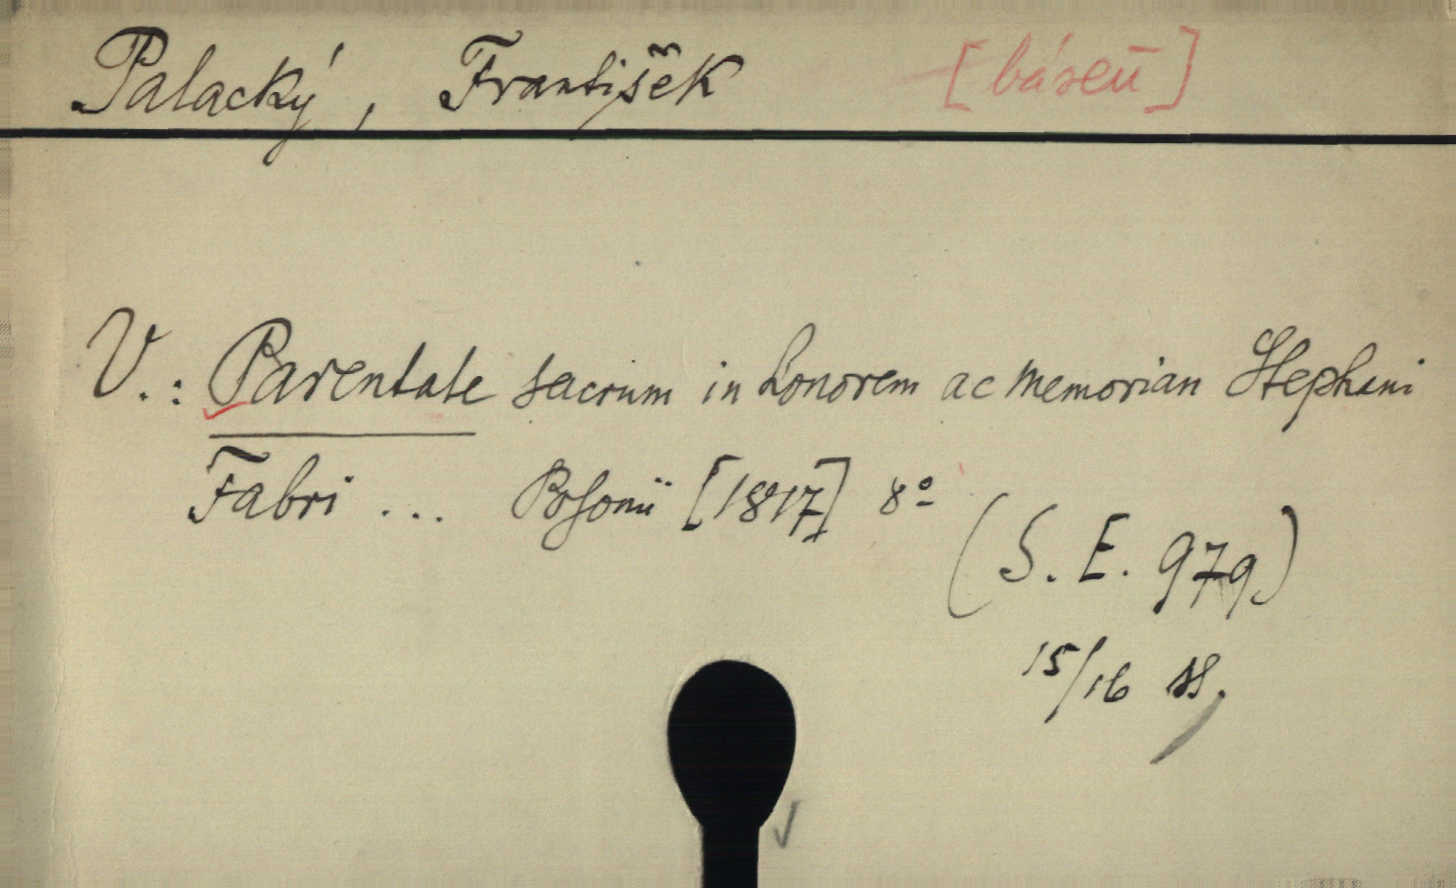 Palacký, František [báseň]
V.: Parentale sacrum in honorem ac memorian Stephani
Fabri ... Posonii [1817] 8º
(S. E. 979)
15/16 ss.